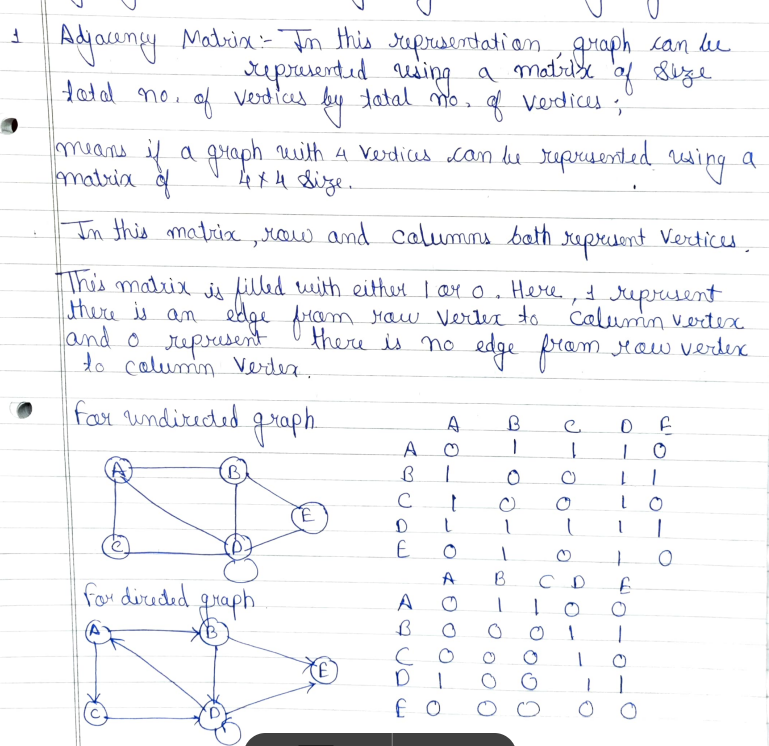 1 Adjacency Matrix:- In this representation, graph can be
represented using a matrix of size
total no. of vertices by total no. of vertices;
means if a graph with 4 vertices can be represented using a
matrix of 4 * 4 size.
In this matrix, row and columns both represent vertices.
This matrix is filled with either 1 or 0. Here, 1 represent
there is an edge from row vertex to column vertex
and 0 represent there is no edge from row vertex
to column vertex.
For undirected graph
A B
E
C D
A B C D E
A 0 1 1 1 0
B 1 0 0 1 1
C 1 0 0 1 0
D 1 1 1 1 1
E 0 1 0 1 0
For directed graph
A B
E
C D
A B C D E
A 0 1 1 0 0
B 0 0 0 1 1
C 0 0 0 1 0
D 1 0 0 1 1
E 0 0 0 0 0